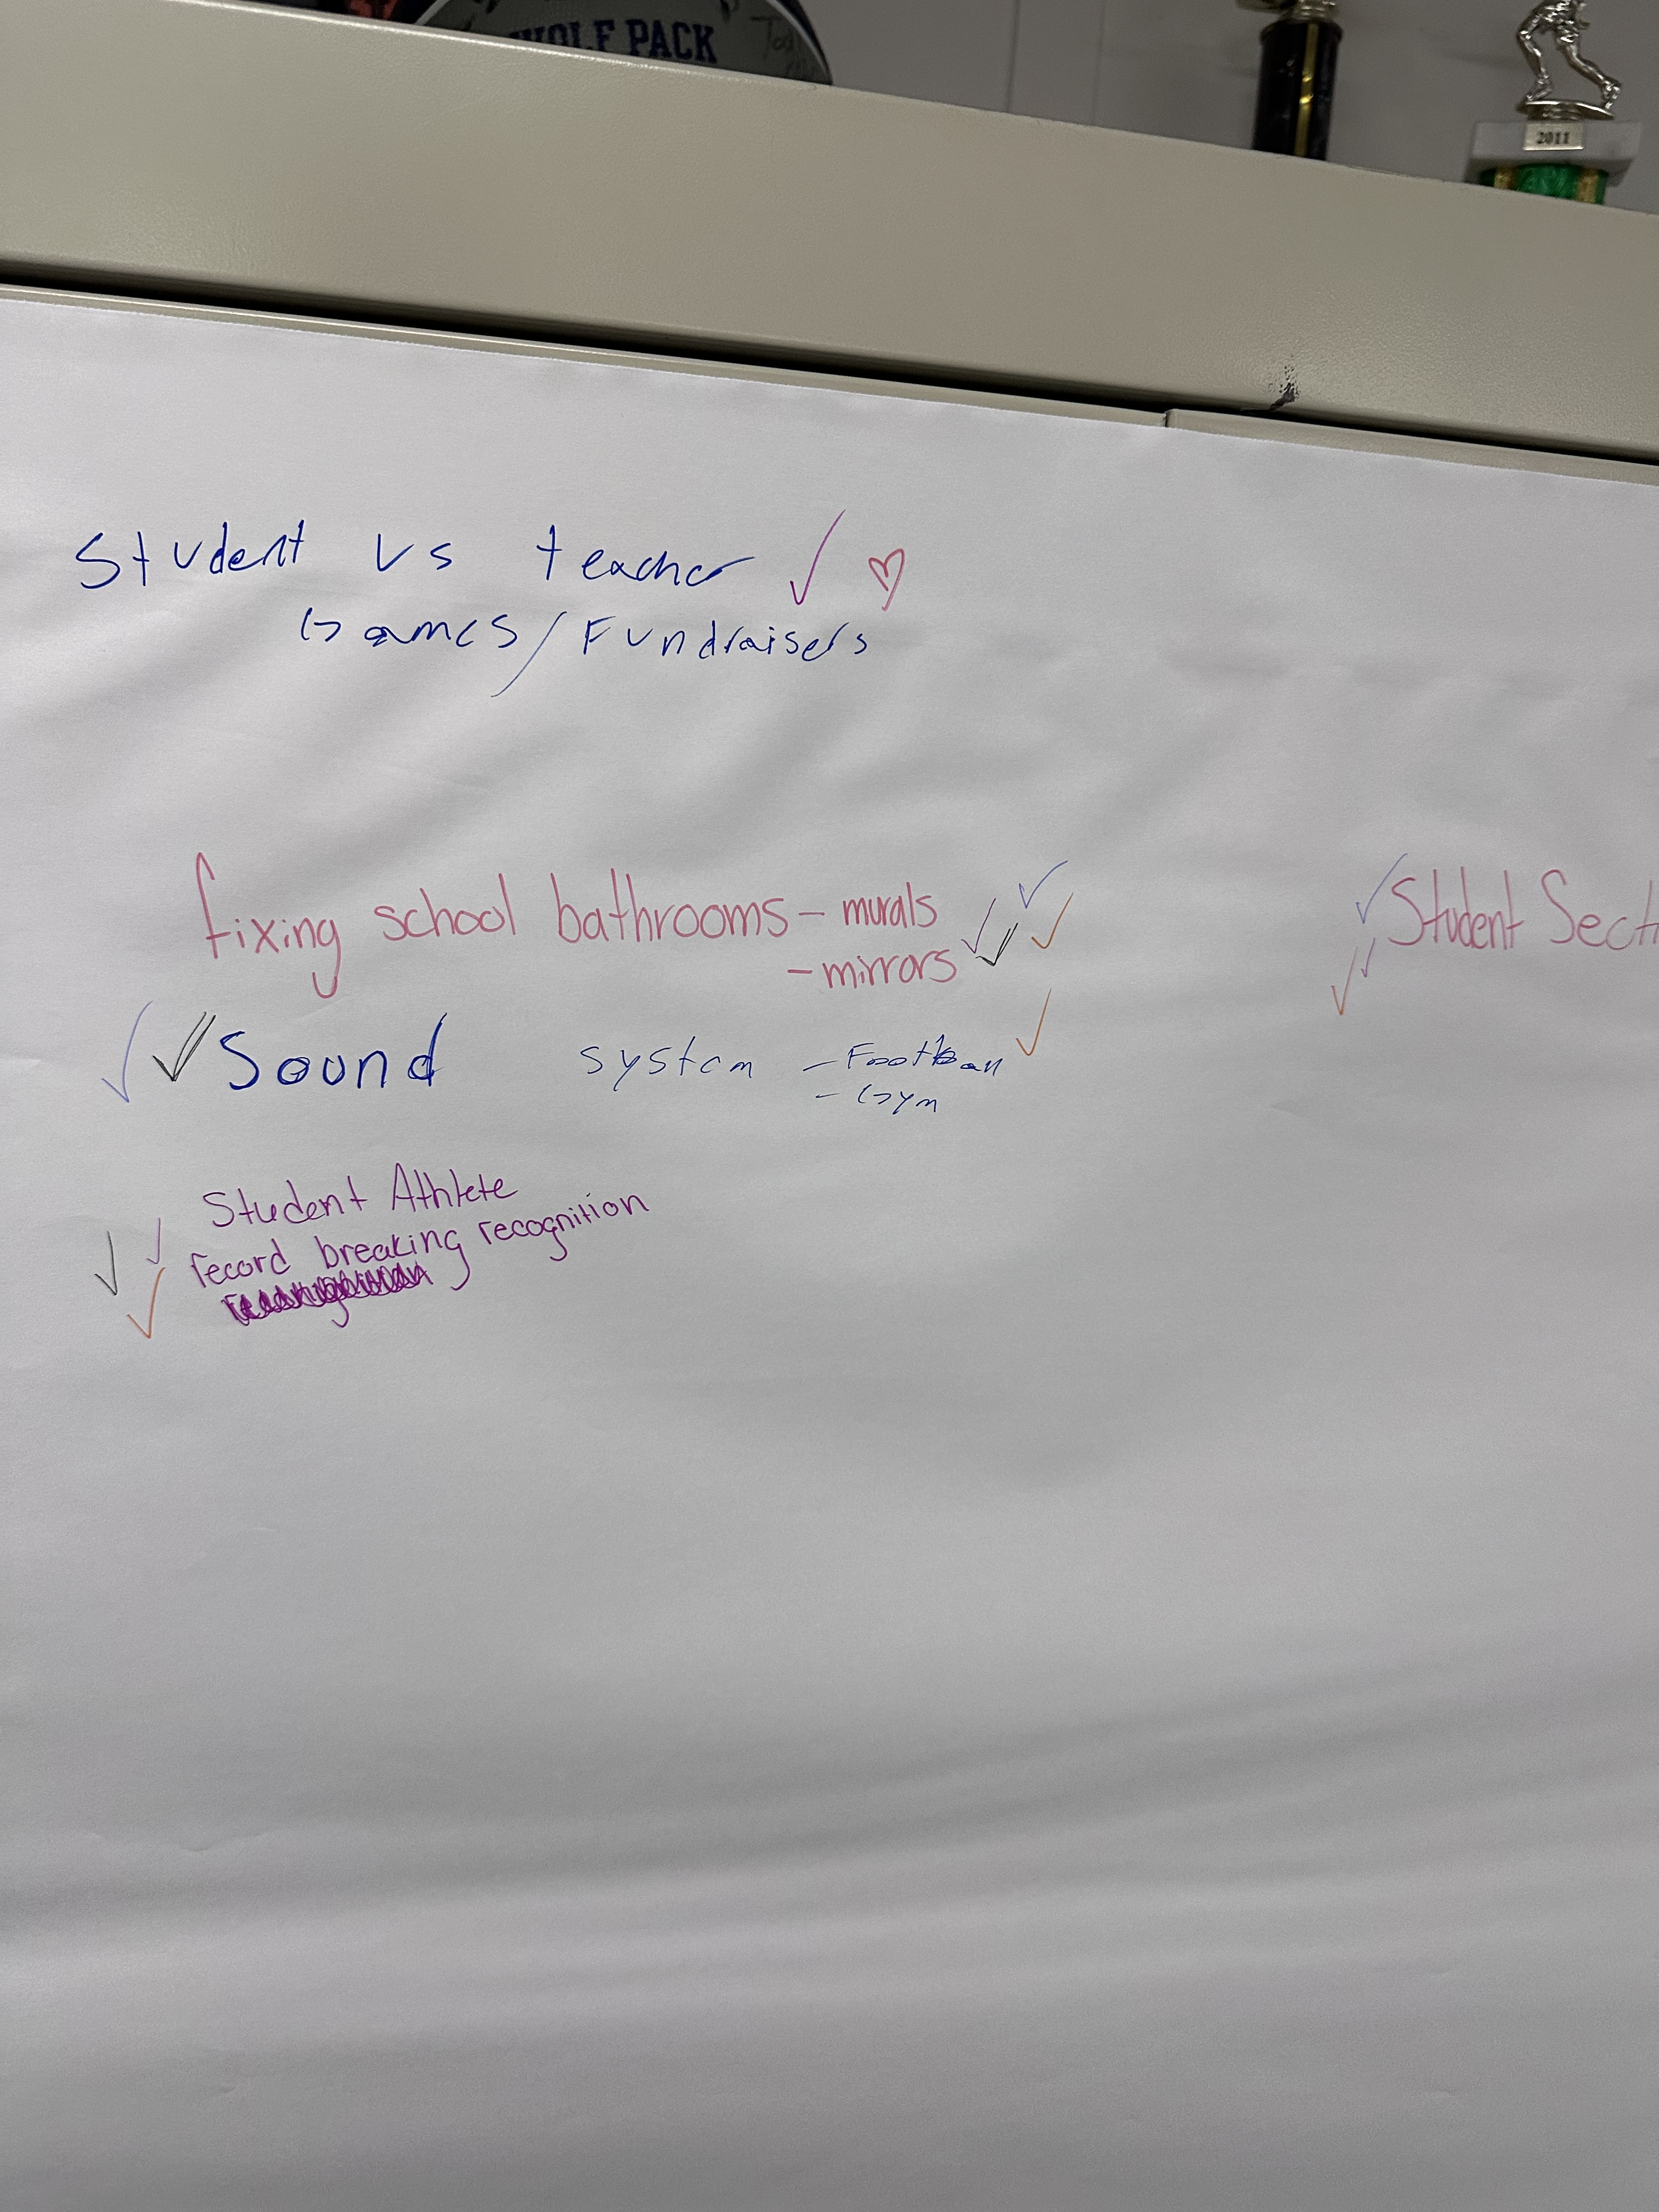 WOLF PACK
2011
Student vs teacher ✓ ♡
Games/Fundraisers
fixing school bathrooms - murals ✓ ✓
- mirrors ✓ ✓
✓ Student Secti
✓ ✓
✓ ✓ Sound system - Football ✓
- Gym
Student Athlete
✓ ✓ record breaking recognition
✓